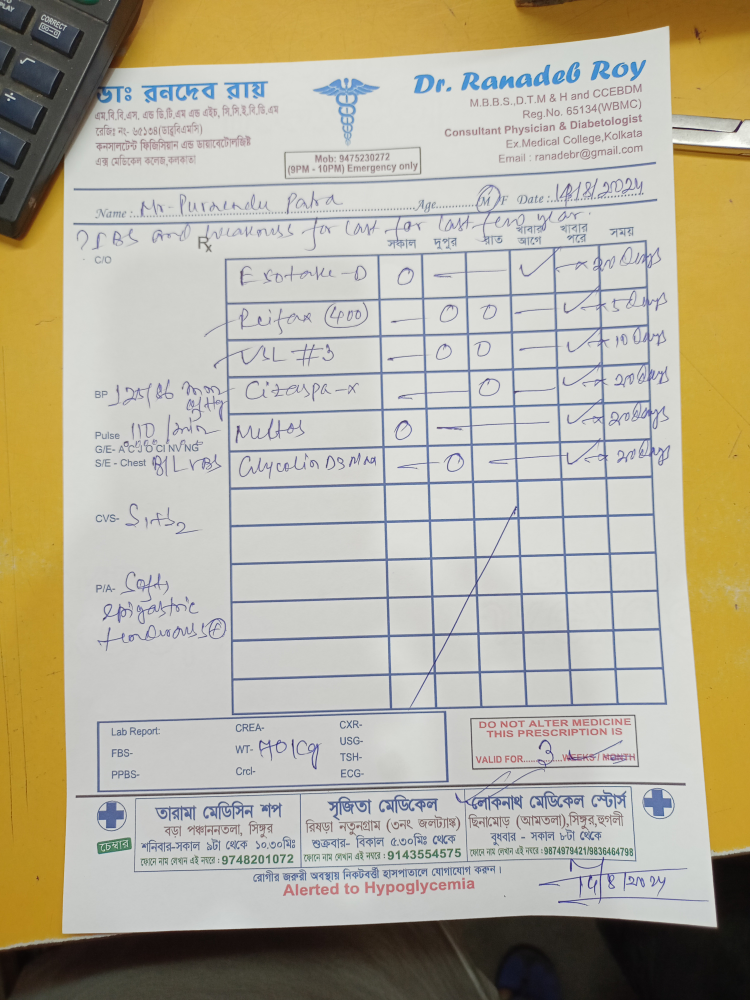 CORRECT
GO→D
PLAY
√
÷
ডাঃ রনদেব রায়
এম.বি.বি.এস. এন্ড ডি.টি.এম এন্ড এইচ, সি.সি.ই.বি.ডি.এম
রেজিঃ নং- ৬৫১৩৪(ডাব্লুবিএমসি)
কনসালটেন্ট ফিজিসিয়ান এন্ড ডায়াবেটোলজিষ্ট
এক্স মেডিকেল কলেজ,কলকাতা
Mob: 9475230272
(9PM - 10PM) Emergency only
Dr. Ranadeb Roy
M.B.B.S.,D.T.M & H and CCEBDM
Reg.No. 65134(WBMC)
Consultant Physician & Diabetologist
Ex.Medical College,Kolkata
Email : ranadebr@gmail.com
Name :. Mr. Purnendu Patra Age M/F Date : 14/8/2024
? IBS and weakness for last for last few year.
C/O Rx সকাল দুপুর রাত খাবার আগে খাবার পরে সময়
Esotake-D O — ✓ —x 20 Days
Reifax (400) — O O — ✓ —x 5 Days
VSL #3 — O O — ✓ —x 10 Days
BP 125/86 mm of Hg Cizaspa-x — O — ✓ —x 20 Days
Pulse 110/min Meltos O — ✓ —x 20 Days
G/E- A C J O Cl NV NG
S/E - Chest B/L VBS Glycolin DS — O — ✓ —x 20 Days
CVS- S1 + S2
P/A- Soft,
epigastric
tenderness (+)
Lab Report: CREA- CXR-
WT- USG-
FBS- TSH-
PPBS- Crcl- ECG-
DO NOT ALTER MEDICINE
THIS PRESCRIPTION IS
VALID FOR....3....WEEKS / MONTH
চেম্বার
তারামা মেডিসিন শপ
বড়া পঞ্চাননতলা, সিঙ্গুর
শনিবার-সকাল ৯টা থেকে ১০.৩০মিঃ
ফোনে নাম লেখান এই নম্বরে : 9748201072
সৃজিতা মেডিকেল
রিষড়া নতুনগ্রাম (৩নং জলট্যাঙ্ক)
শুক্রবার- বিকাল ৫.৩০মিঃ থেকে
ফোনে নাম লেখান এই নম্বরে : 9143554575
লোকনাথ মেডিকেল স্টোর্স
ছিনামোড় (আমতলা),সিঙ্গুর,হুগলী
বুধবার - সকাল ৮টা থেকে
ফোনে নাম লেখান এই নম্বরে :9874979421/9836464798
রোগীর জরুরী অবস্থায় নিকটবর্ত্তী হাসপাতালে যোগাযোগ করুন।
Alerted to Hypoglycemia
14/8/2024